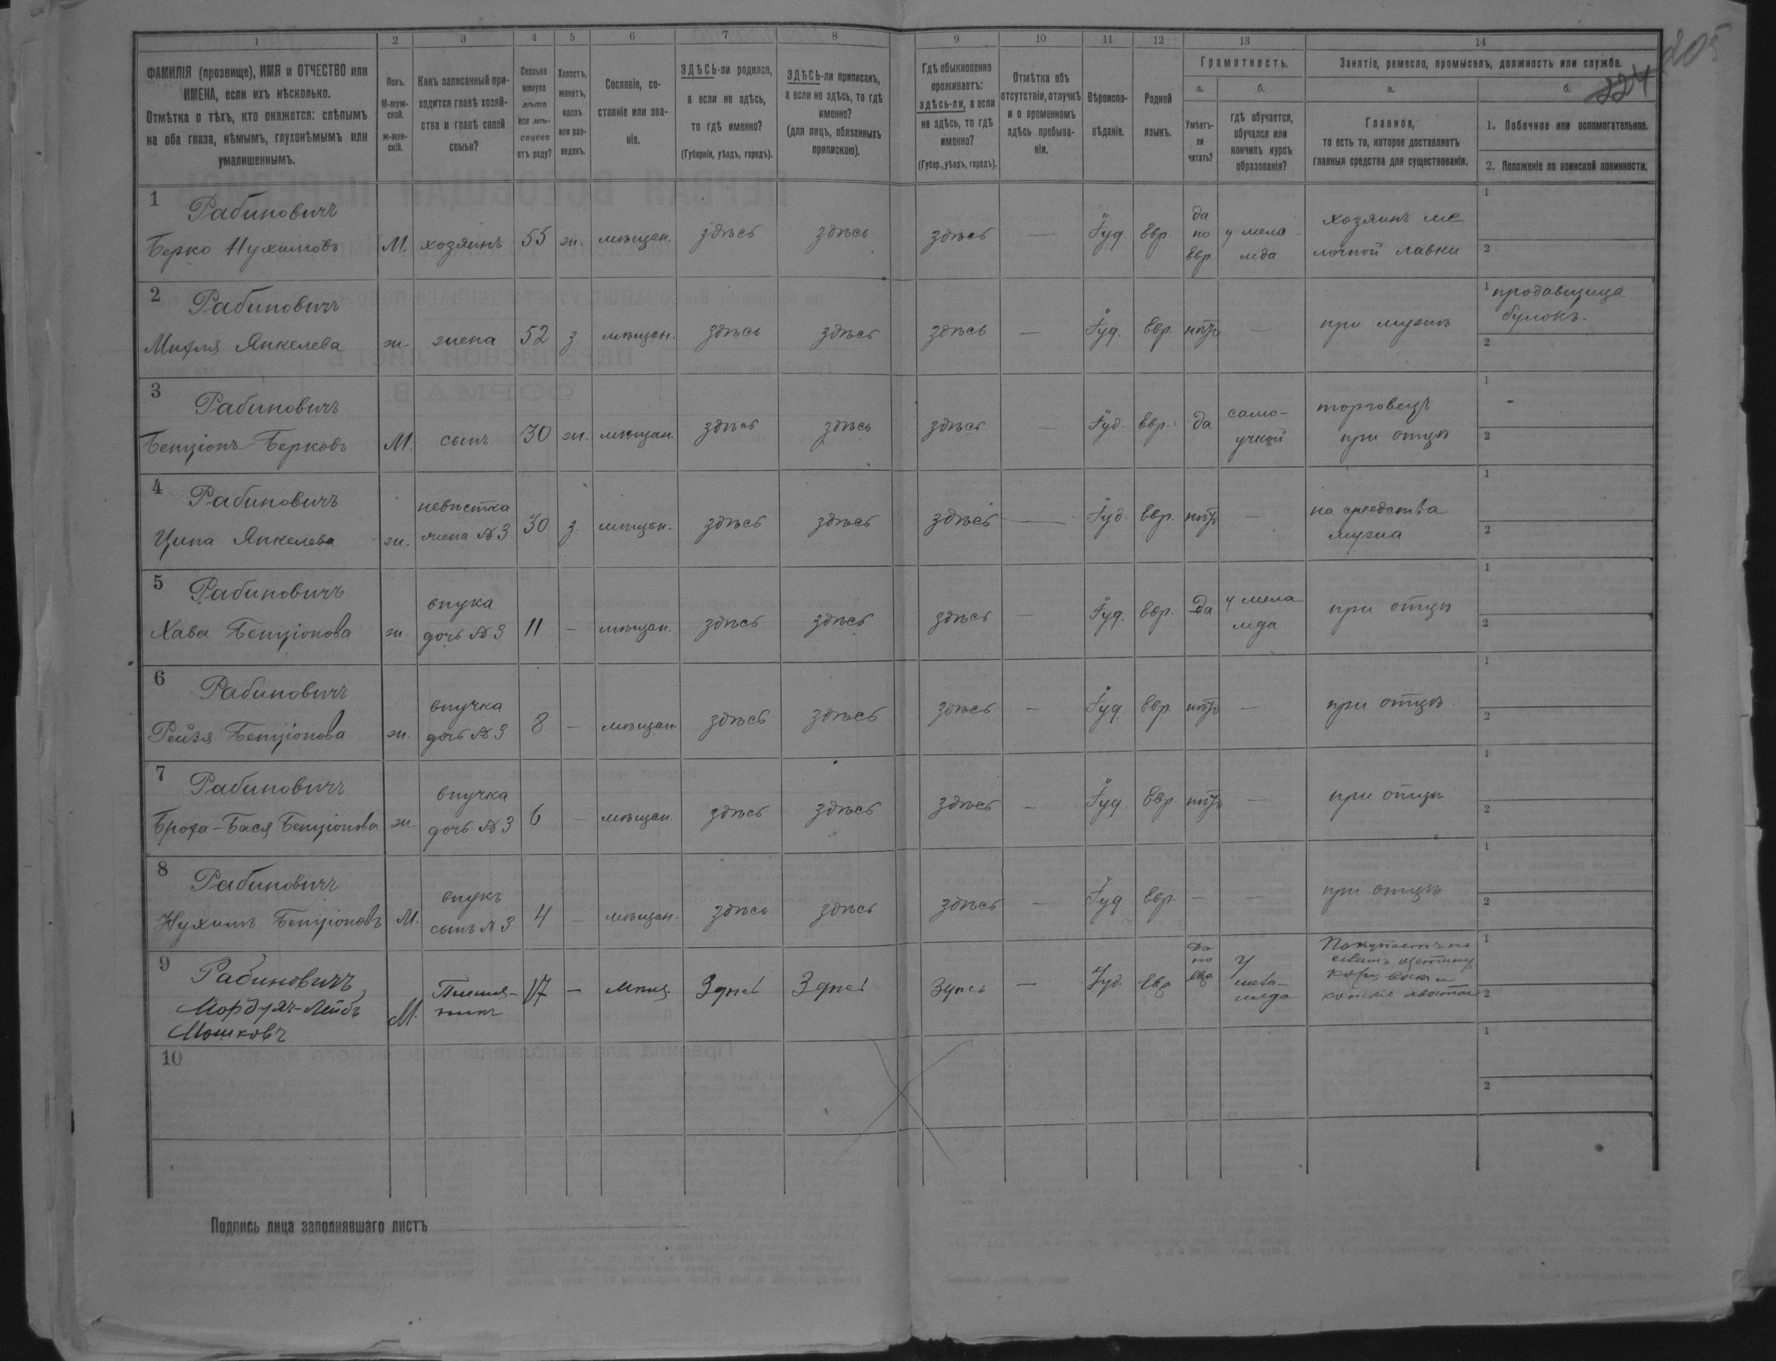 205
224
1 2 3 4 5 6 7 8 9 10 11 12 13 14
ФАМИЛІЯ (прозвище), ИМЯ и ОТЧЕСТВО или ИМЕНА, если ихъ нѣсколько.
Отмѣтка о тѣхъ, кто окажется: слѣпымъ на оба глаза, нѣмымъ, глухонѣмымъ или умалишеннымъ.
Полъ. М-мужской. Ж-женскій.
Какъ записанный приходится главѣ хозяйства и главѣ своей семьи?
Сколько минуло лѣтъ или мѣсяцевъ отъ роду?
Холостъ, женатъ, вдовъ или разведенъ.
Сословіе, состояніе или званіе.
ЗДѢСЬ-ли родился, а если не здѣсь, то гдѣ именно?
(Губернія, уѣздъ, городъ).
ЗДѢСЬ-ли приписанъ, а если не здѣсь, то гдѣ именно?
(для лицъ, обязанныхъ припискою).
Гдѣ обыкновенно проживаетъ: здѣсь-ли, а если не здѣсь, то гдѣ именно?
(Губер., уѣздъ, городъ).
Отмѣтка объ отсутствіи, отлучкѣ и о временномъ здѣсь пребываніи.
Вѣроисповѣданіе.
Родной языкъ.
Грамотность.
а. Умѣетъ-ли читать?
б. гдѣ обучается, обучался или кончилъ курсъ образованія?
Занятіе, ремесло, промыселъ, должность или служба.
а. Главное, то есть то, которое доставляетъ главныя средства для существованія.
б.
1. Побочное или вспомогательное.
2. Положеніе по воинской повинности.
1 Рабиновичъ
Берко Нухимовъ М. хозяинъ 55 ж. мѣщан. здѣсь здѣсь здѣсь — Іуд. Евр. да по Евр. у меламеда хозяинъ мелочной лавки 1 2
2 Рабиновичъ
Михля Янкелева ж. жена 52 з. мѣщан. здѣсь здѣсь здѣсь — Іуд. Евр. нѣтъ — при мужѣ 1 продавщица булокъ. 2
3 Рабиновичъ
Бенціонъ Берковъ М. сынъ 30 ж. мѣщан. здѣсь здѣсь здѣсь — Іуд. Евр. да самоучкой торговецъ при отцѣ 1 - 2
4 Рабиновичъ
Ципа Янкелева ж. невѣстка жена №3 30 з. мѣщан. здѣсь здѣсь здѣсь — Іуд. Евр. нѣтъ — на средства мужа 1 2
5 Рабиновичъ
Хава Бенціонова ж. внука дочь №3 11 — мѣщан. здѣсь здѣсь здѣсь — Іуд. Евр. Да у меламеда при отцѣ 1 2
6 Рабиновичъ
Рейзя Бенціонова ж. внучка дочь №3 8 — мѣщан. здѣсь здѣсь здѣсь — Іуд. Евр. нѣтъ — при отцѣ 1 2
7 Рабиновичъ
Броха-Бася Бенціонова ж. внучка дочь №3 6 — мѣщан. здѣсь здѣсь здѣсь — Іуд. Евр. нѣтъ — при отцѣ 1 2
8 Рабиновичъ
Нухимъ Бенціоновъ М. внукъ сынъ №3 4 — мѣщан. здѣсь здѣсь здѣсь — Іуд. Евр. — — при отцѣ 1 2
9 Рабиновичъ
Мордхъ-Лейбъ
Мошковъ М. 17 — Мѣщ. Здѣсь Здѣсь Здѣсь — Іуд. Евр. Да по евр. У меламеда 1 2
10 1 2
Подпись лица заполнявшаго листъ